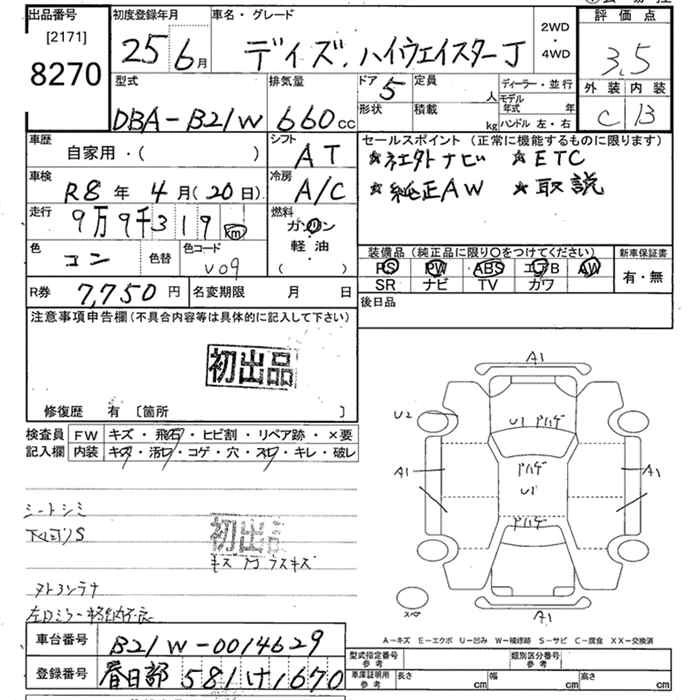 出品番号 初度登録年月 車名・グレード 2WD・4WD 評価点
[2171]
8270
25 6月 デイズ.ハイウェイスターJ 3.5
型式 排気量 ドア 5 定員 人 ディーラー・並行 外装 内装
DBA-B21W 660cc 形状 積載 kg モデル年式 年 ハンドル 左・右 C B
車歴 シフト セールスポイント(正常に機能するものに限ります)
自家用・( ) AT ★社外ナビ ★ETC
車検 冷房 ★純正AW ★取説
R8年 4月(20日) A/C
走行 燃料
9万9千319 km ガソリン
軽油
( )
色 コン 色替 色コード V09
装備品(純正品に限り○をつけてください) 新車保証書
PS PW ABS エアB AW 有・無
SR ナビ TV カワ
R券 7,750円 名変期限 月 日 後日品
注意事項申告欄(不具合内容等は具体的に記入して下さい)
初出品
修復歴 有 〔箇所 〕
検査員 FW キズ・飛石・ヒビ割・リペア跡・×要
記入欄 内装 キズ・汚レ・コゲ・穴・スレ・キレ・破レ
シートシミ
下回りS
初出品
左ドミラー格納不良
A1
U2 U1 アハゲ
A1 アハゲ A1
U1
アハゲ
スペア A1
A-キズ E-エクボ U-凹み W-補修跡 S-サビ C-腐食 XX-交換済
車台番号 B21W-0014629 型式指定番号 参考 類別区分番号 参考
登録番号 春日部 581 け1670 車庫証明寸法 参考 長さ cm 幅 cm 高さ cm